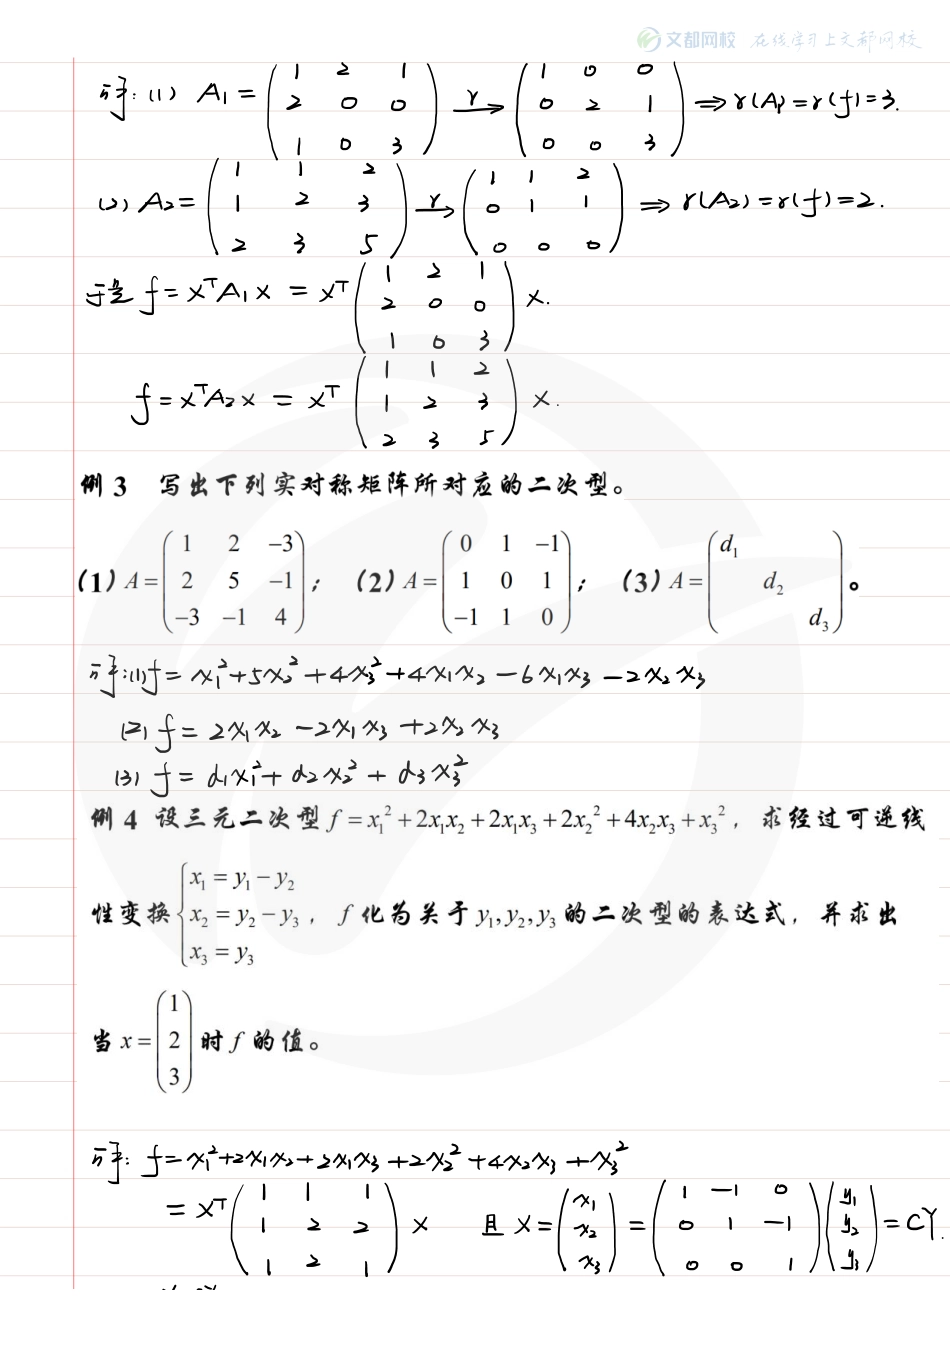 文都网校 在线学习上文都网校
解：(1) A₁ = \begin{pmatrix} 1 & 2 & 1 \\ 2 & 0 & 0 \\ 1 & 0 & 3 \end{pmatrix} \xrightarrow{r} \begin{pmatrix} 1 & 0 & 0 \\ 0 & 2 & 1 \\ 0 & 0 & 3 \end{pmatrix} ⇒ r(A₁) = r(f) = 3.
(2) A₂ = \begin{pmatrix} 1 & 1 & 2 \\ 1 & 2 & 3 \\ 2 & 3 & 5 \end{pmatrix} \xrightarrow{r} \begin{pmatrix} 1 & 1 & 2 \\ 0 & 1 & 1 \\ 0 & 0 & 0 \end{pmatrix} ⇒ r(A₂) = r(f) = 2.
于是 f = xᵀA₁x = xᵀ \begin{pmatrix} 1 & 2 & 1 \\ 2 & 0 & 0 \\ 1 & 0 & 3 \end{pmatrix} x.
f = xᵀA₂x = xᵀ \begin{pmatrix} 1 & 1 & 2 \\ 1 & 2 & 3 \\ 2 & 3 & 5 \end{pmatrix} x.
例 3 写出下列实对称矩阵所对应的二次型。
(1) A = \begin{pmatrix} 1 & 2 & -3 \\ 2 & 5 & -1 \\ -3 & -1 & 4 \end{pmatrix}； (2) A = \begin{pmatrix} 0 & 1 & -1 \\ 1 & 0 & 1 \\ -1 & 1 & 0 \end{pmatrix}； (3) A = \begin{pmatrix} d₁ & & \\ & d₂ & \\ & & d₃ \end{pmatrix}。
解：(1) f = x₁² + 5x₂² + 4x₃² + 4x₁x₂ − 6x₁x₃ − 2x₂x₃
(2) f = 2x₁x₂ − 2x₁x₃ + 2x₂x₃
(3) f = d₁x₁² + d₂x₂² + d₃x₃²
例 4 设三元二次型 f = x₁² + 2x₁x₂ + 2x₁x₃ + 2x₂² + 4x₂x₃ + x₃²，求经过可逆线
性变换 \begin{cases} x₁ = y₁ − y₂ \\ x₂ = y₂ − y₃ \\ x₃ = y₃ \end{cases}，f 化为关于 y₁, y₂, y₃ 的二次型的表达式，并求出
当 x = \begin{pmatrix} 1 \\ 2 \\ 3 \end{pmatrix} 时 f 的值。
解：f = x₁² + 2x₁x₂ + 2x₁x₃ + 2x₂² + 4x₂x₃ + x₃²
= xᵀ \begin{pmatrix} 1 & 1 & 1 \\ 1 & 2 & 2 \\ 1 & 2 & 1 \end{pmatrix} x 且 x = \begin{pmatrix} x₁ \\ x₂ \\ x₃ \end{pmatrix} = \begin{pmatrix} 1 & -1 & 0 \\ 0 & 1 & -1 \\ 0 & 0 & 1 \end{pmatrix} \begin{pmatrix} y₁ \\ y₂ \\ y₃ \end{pmatrix} = CY.